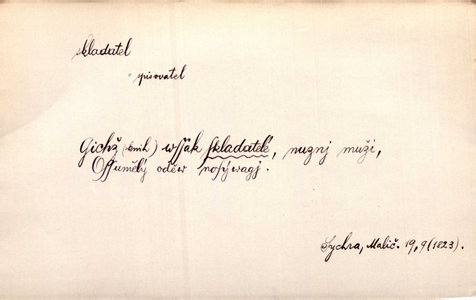 skladatel
spisovatel
Gichž (knih) wssak skladatelé, nuznj muži,
Ossumělý oděw nosýwagj.
Sychra, Malič. 19, 9 (1823).